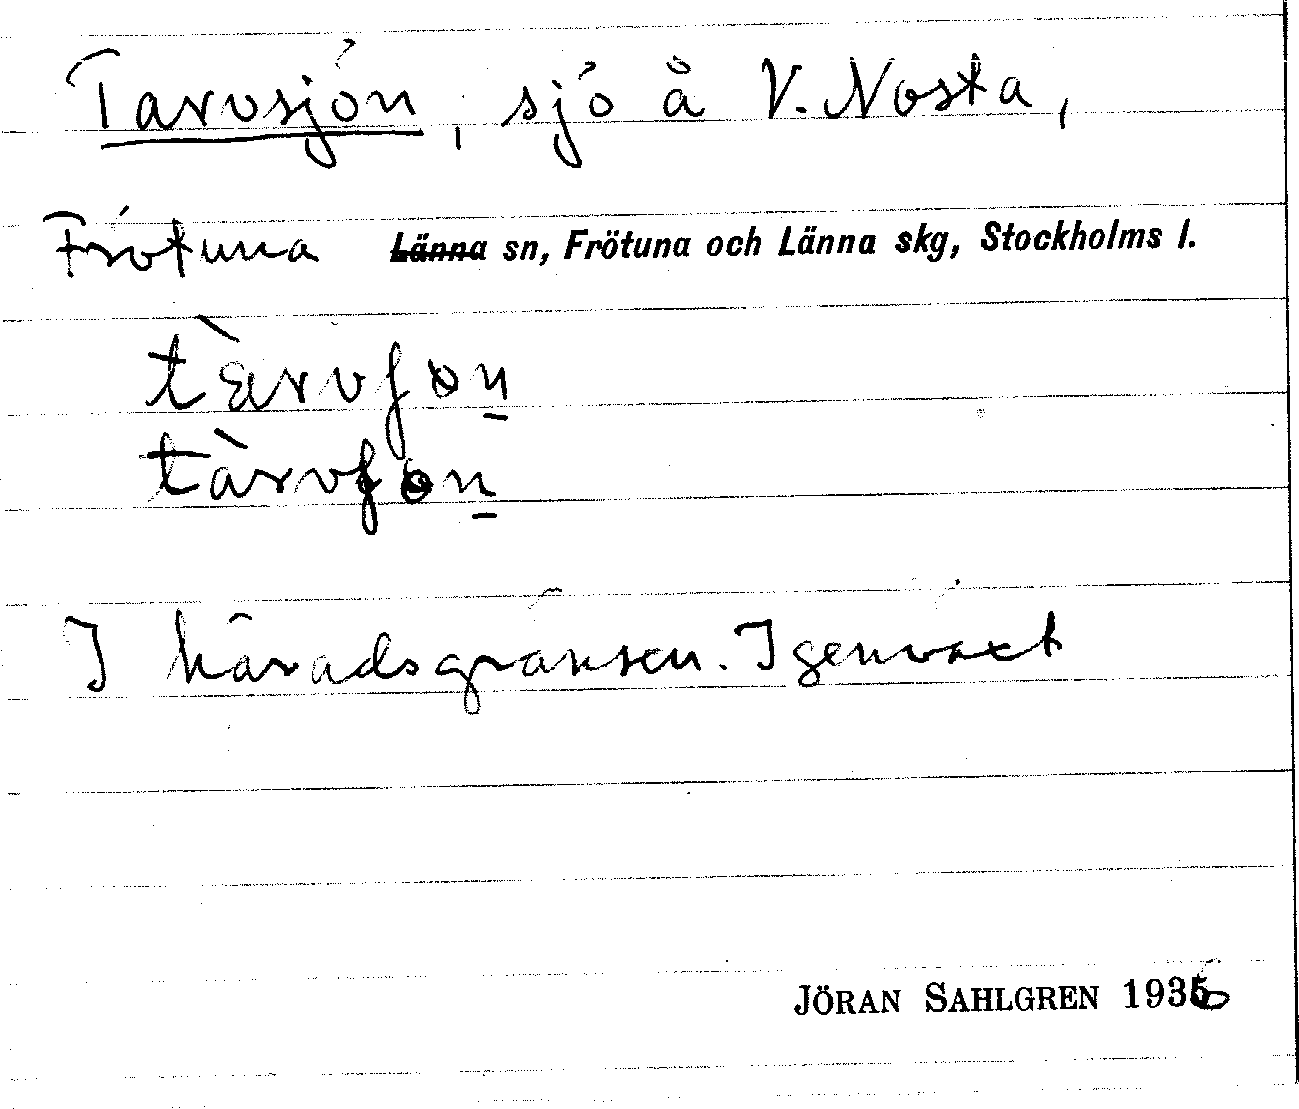 Tarvsjön, sjö å V. Nosta,
Frötuna ~~Länna~~ sn, Frötuna och Länna skg, Stockholms l.
tàrvʃon̲
tàrvʃon̲
I häradsgränsen. Igenväxt
JÖRAN SAHLGREN 1936